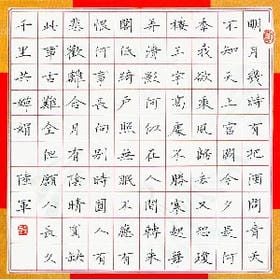 明月幾時有把酒問青天
不知天上宮闕今夕是何
年我欲乘風歸去又恐瓊
樓玉宇高處不勝寒起舞
弄清影何似在人間轉朱
閣低綺戶照無眠不應有
恨何事長向別時圓人有
悲歡離合月有陰晴圓缺
此事難全但願人長久
千里共嬋娟
陸軍